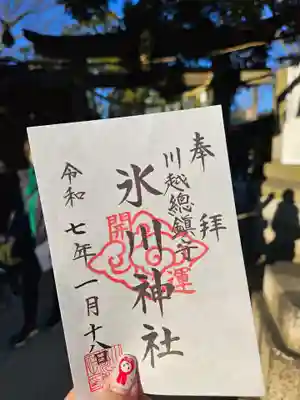 奉拝
川越總鎮守
氷川神社
開運
令和七年一月十八日